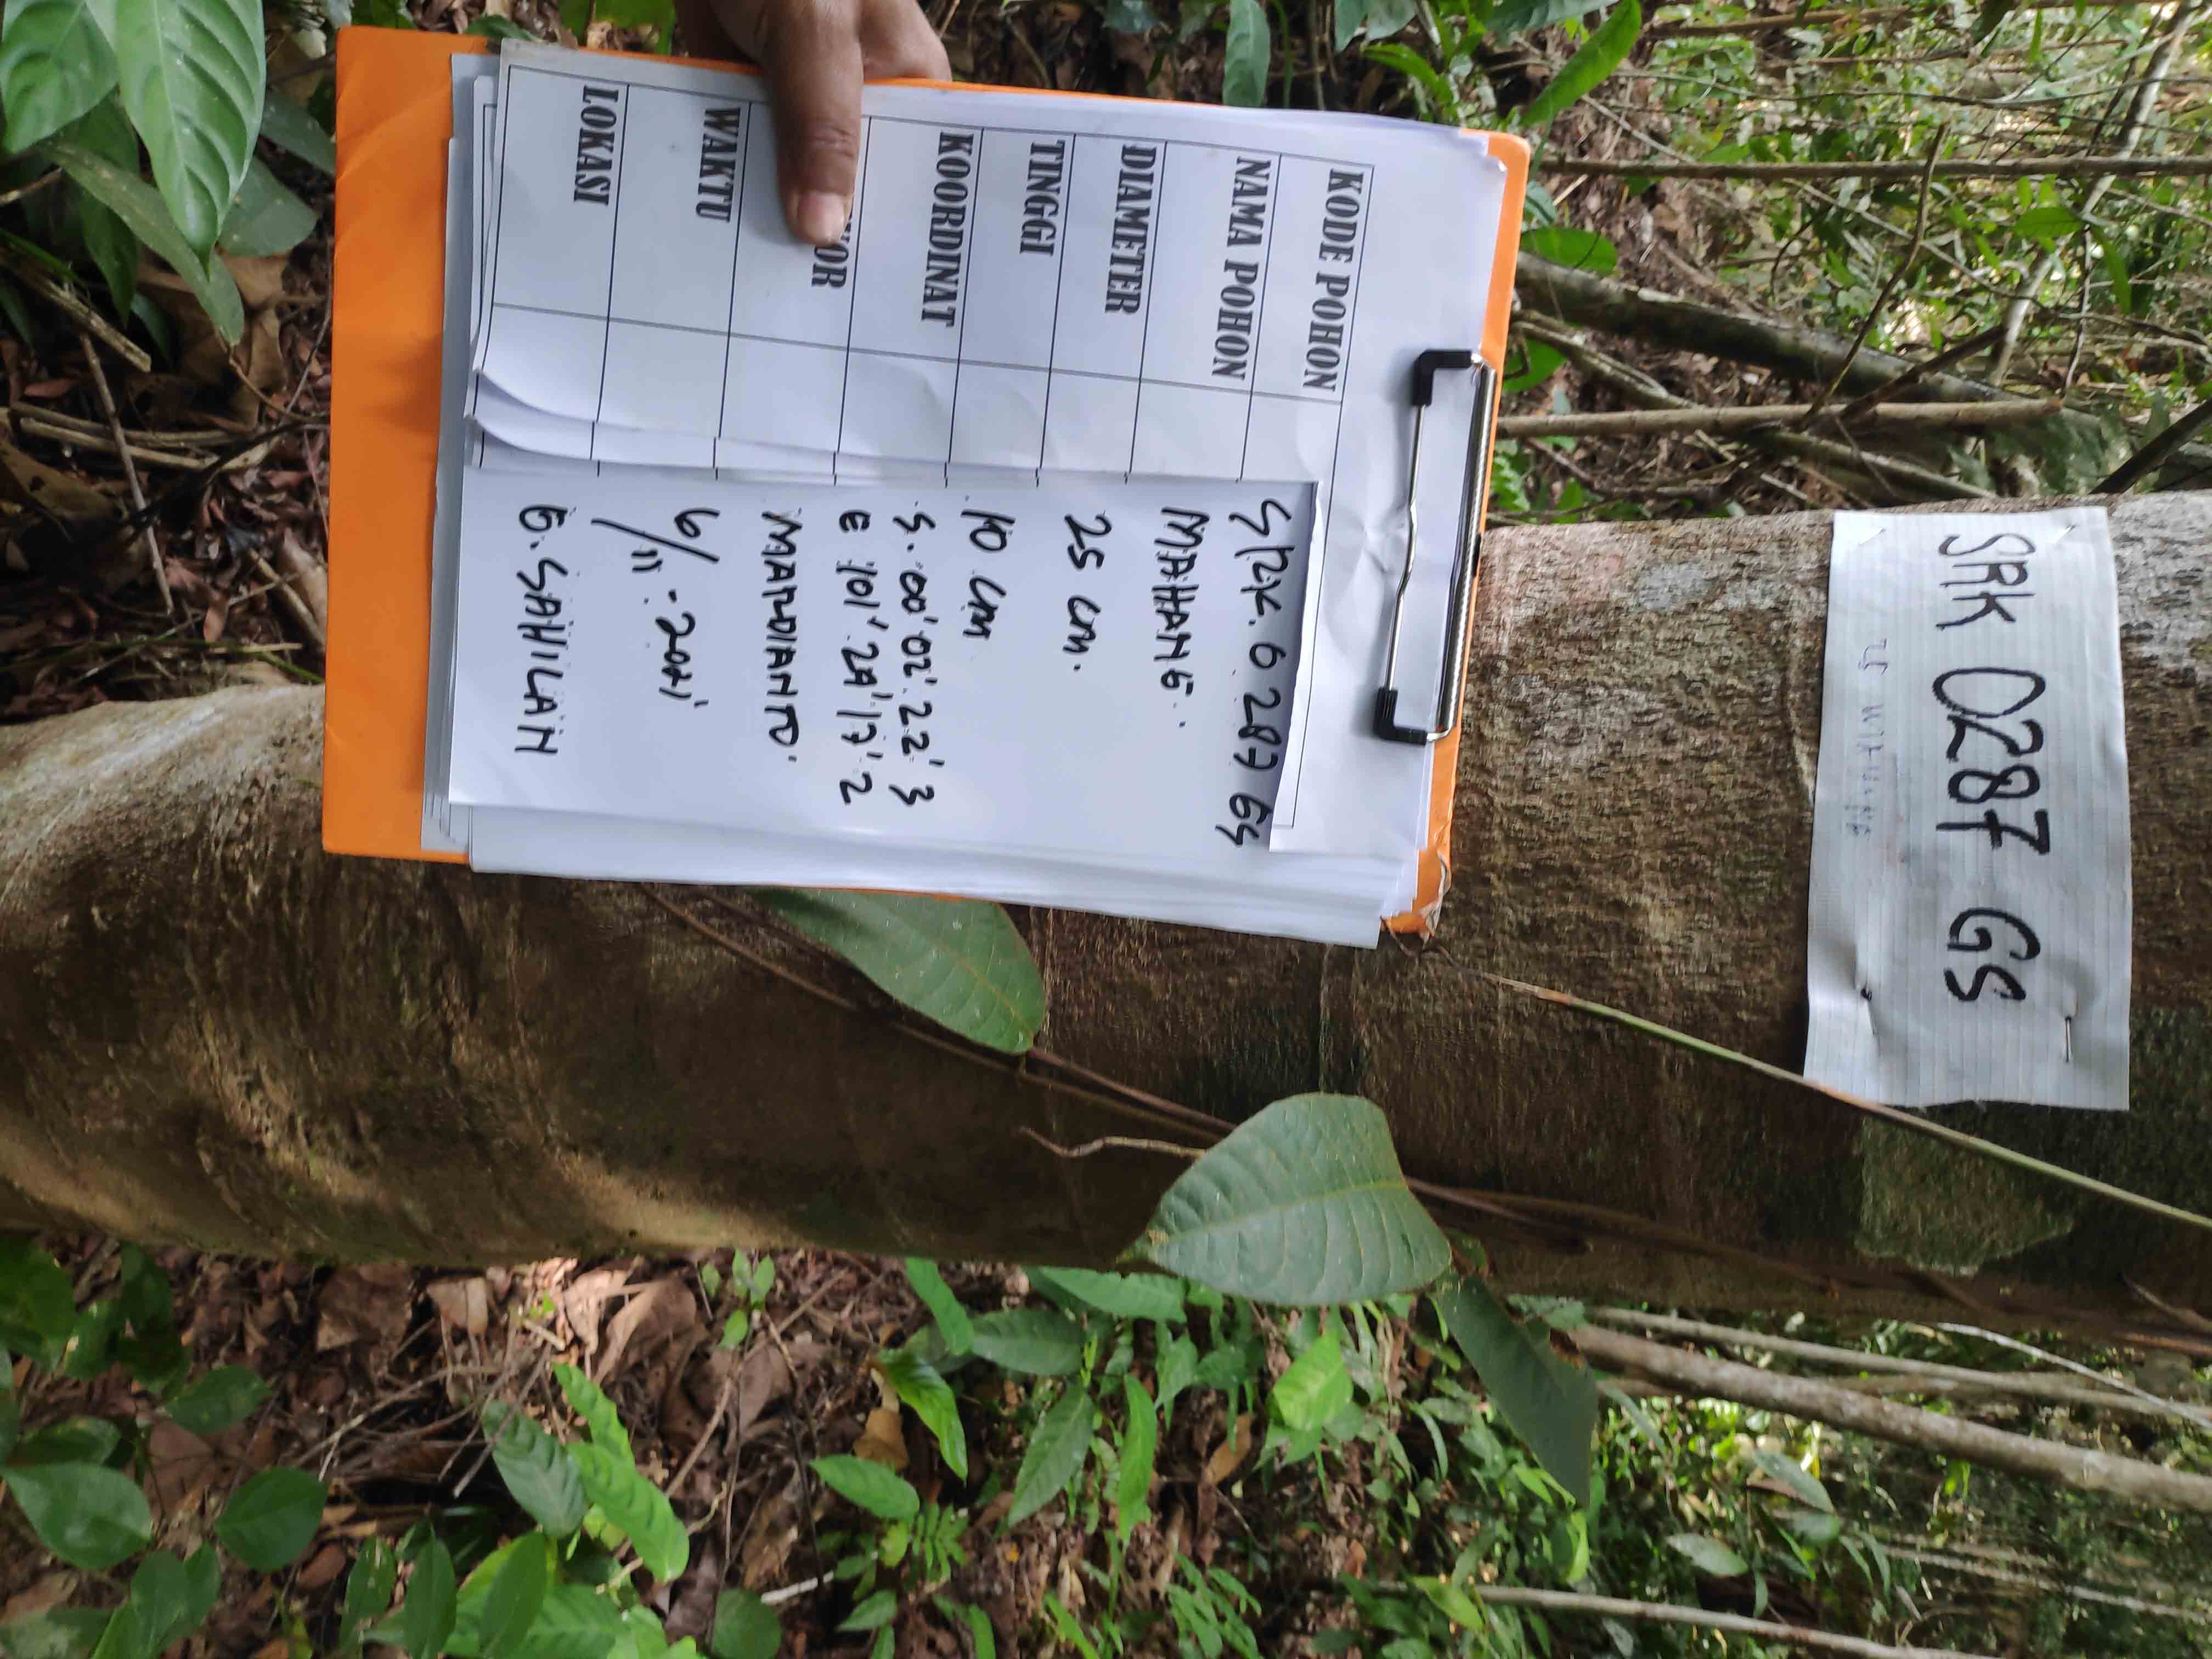 SRK 0287 GS
KODE POHON
SRK. 0 287 GS
NAMA POHON
MAHANG..
DIAMETER
25 cm.
TINGGI
10 cm
KOORDINAT
S. 00' 02' 22' 3
E 101' 24' 17' 2
YOR
MARDIANTO
WAKTU
6/11 - 2021
LOKASI
G. SAHILAN